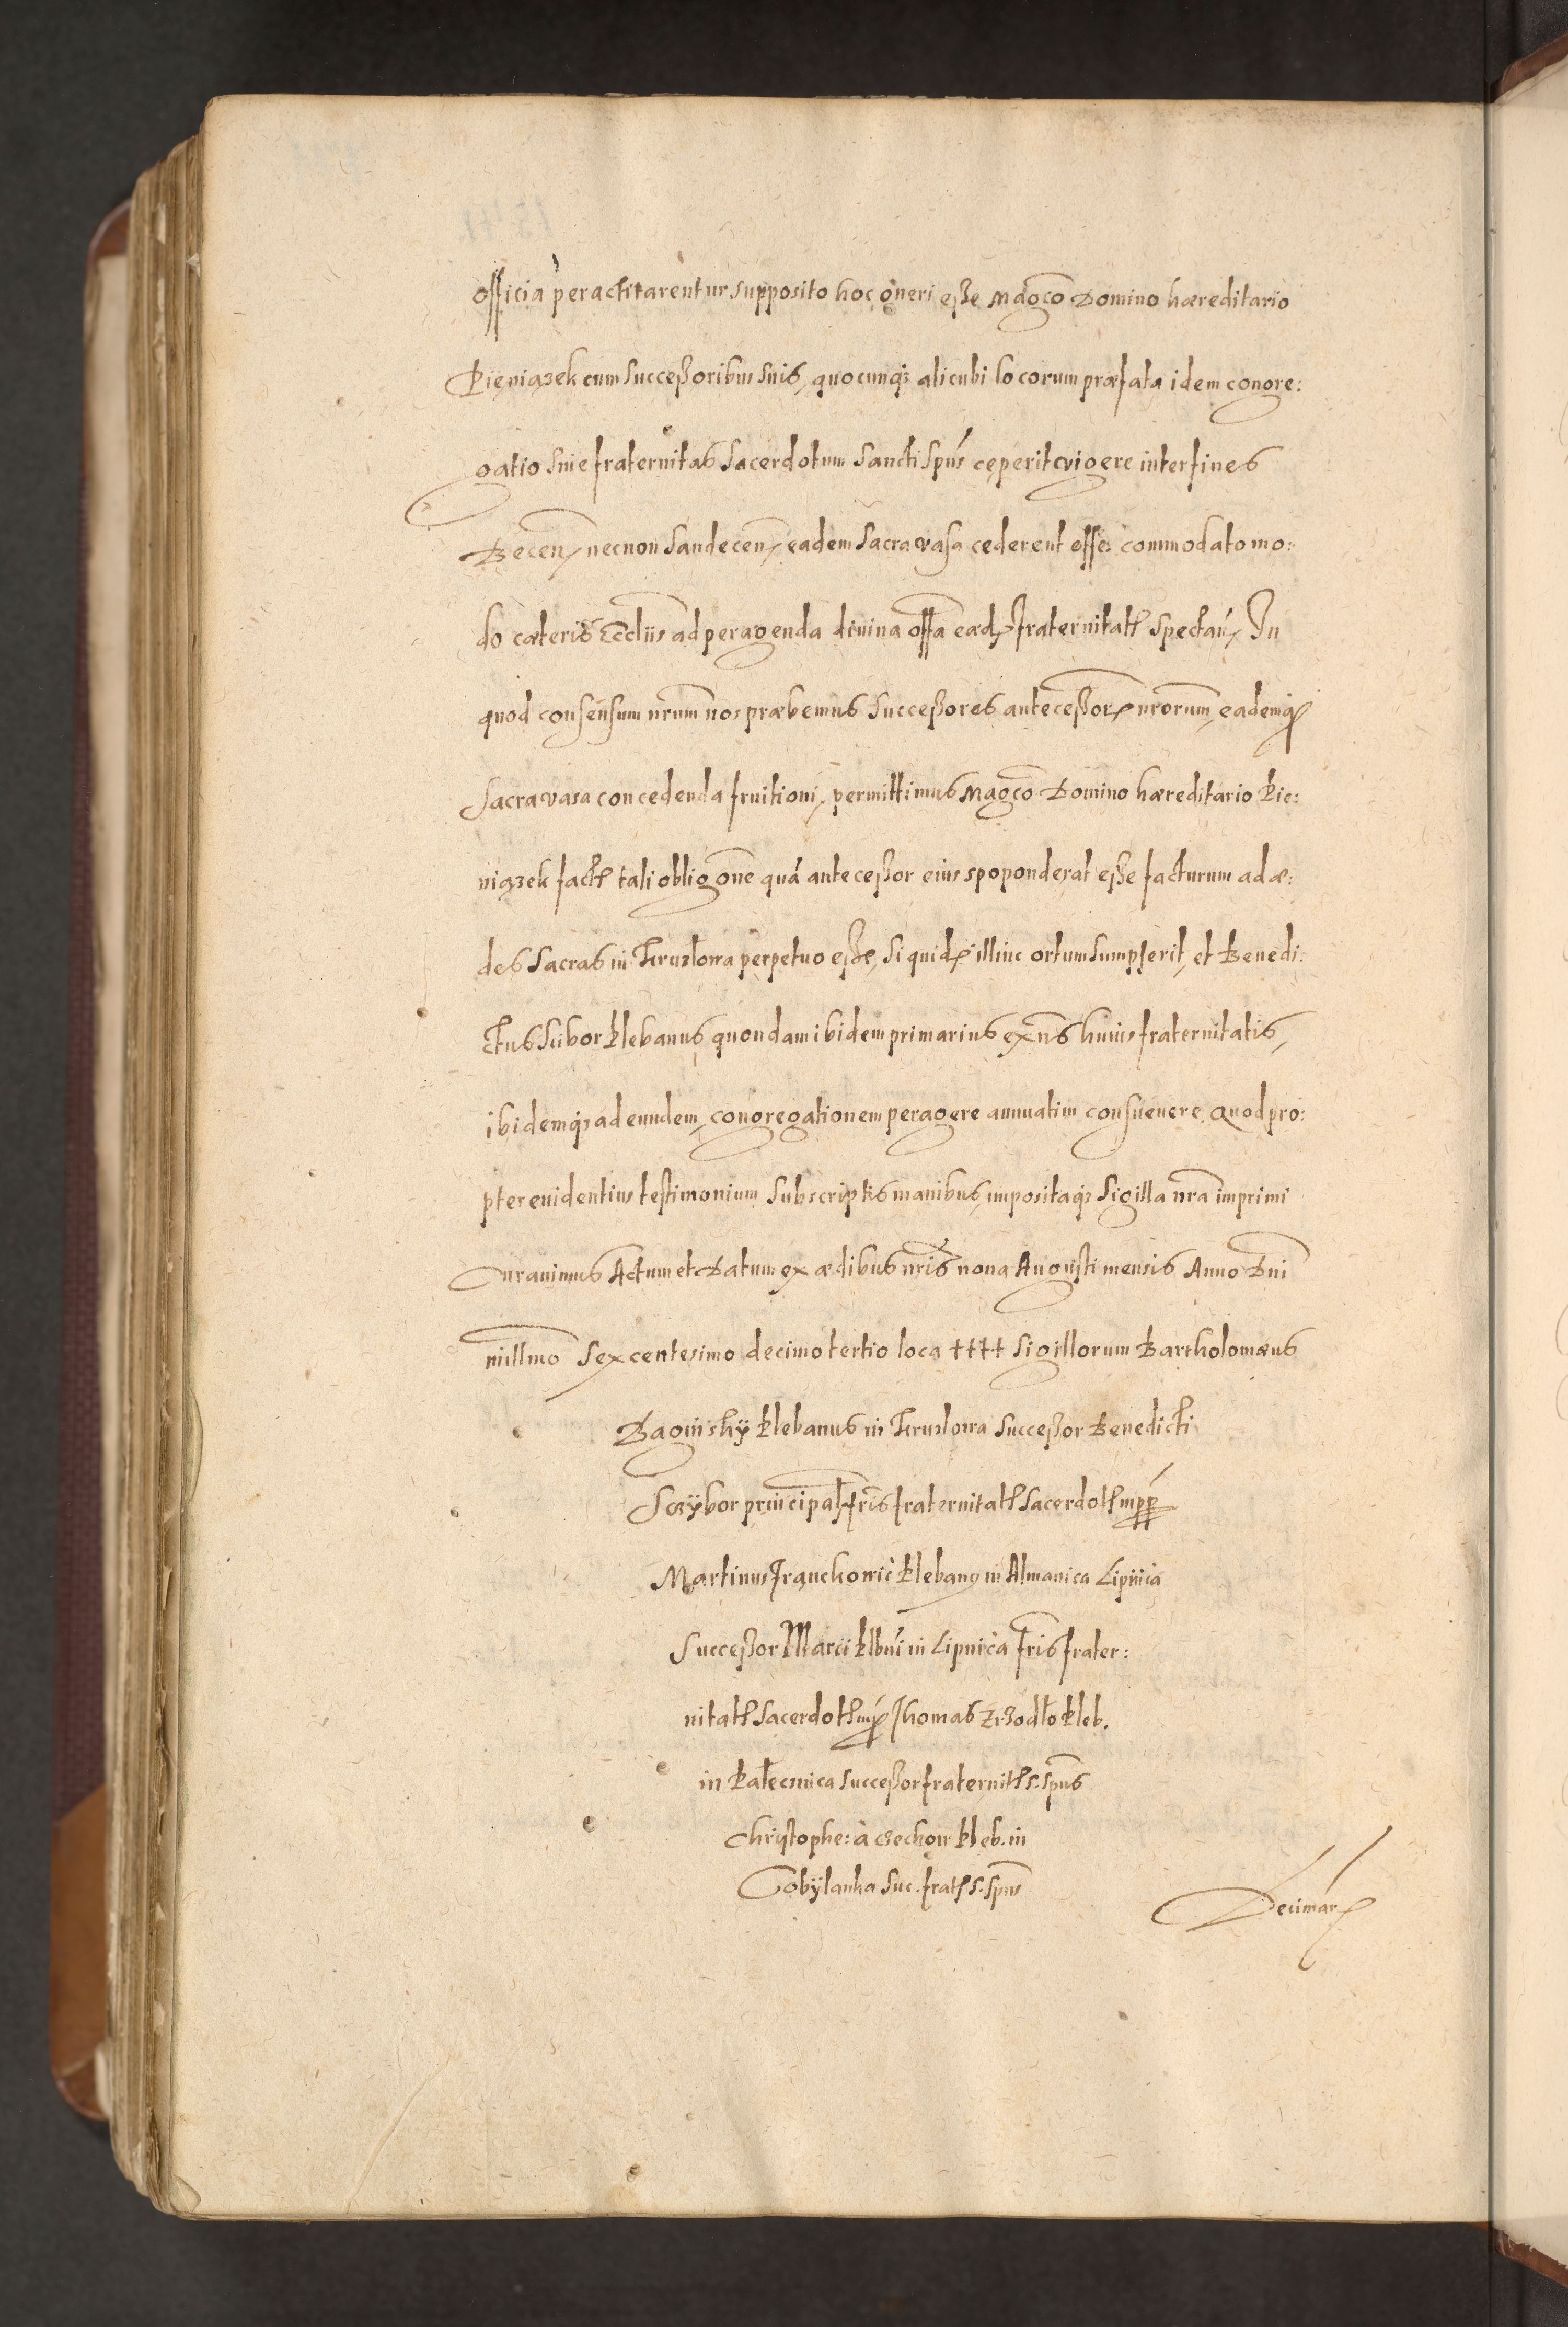 officia peractitarentur supposito hoc oneri eße Magco Domino hæreditario
Pieniązek cum succeßoribus suis, quocunq; alicubi locorum præfata idem congre:
gatio siue fraternitas Sacerdotum Sancti Spūs ceperit vigere inter fines
Becen, necnon Sandecen, eadem sacra vasa cederent esse commodato mo:
do cæteris Eccliis ad peragenda diuina offa fraternitat spectan In
quod consensum nrum nos præbemus Succeßores anteceßor nrorum, eademq
Sacra vasa concedenda fruitioni, permittimus Magco Domino hæreditario Pie:
niązek fact tali obligone quā anteceßor eius spoponderat eße facturum ad æ:
des Sacras in Kruzlowa perpetuo eße, siquid illinc ortum sumpserit, et Benedi:
ctus Subor Plebanus quondam ibidem primarius exns huius fraternitatis,
ibidemq; ad eundem, congregationem peragere annuatim consueuere Quod pro:
pter euidentius testimonium subscriptis manibus, impositaq; Sigilla nra imprimi
Curauimus Actum et Datum ex ædibus nris nona Augusti mensis Anno Dni
millmo Sexcentesimo decimo tertio loca ++++ Sigillorum Bartholomæus
Baginsky Plebanus in Kruzlowa Succeßor Benedicti
Sczÿbor principal fris fraternitat Sacerdot mpp
Martinus Franckowic Plebany in Almanica Lipnica
Succeßor Marci Plbni in Lipnica fris frater:
nitat Sacerdot mp Thomas Zrzodło Pleb.
in Kałecnica Succeßor fraternit S. Spus
Christophe: à Czechow Pleb. in
Cobÿlanka Suc. frat S. Spus
Decimar